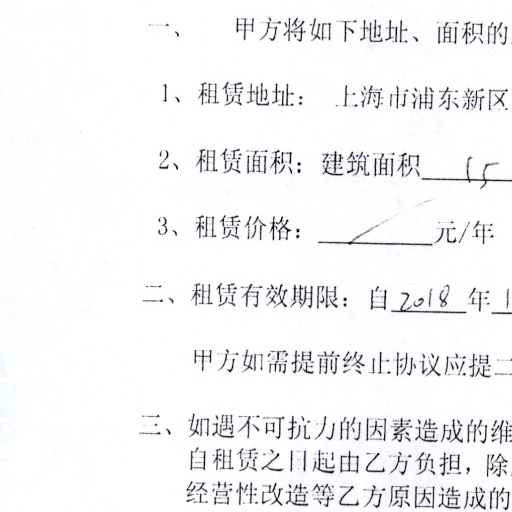 一、 甲方将如下地址、面积的
1、租赁地址： 上海市浦东新区
2、租赁面积：建筑面积 15
3、租赁价格： / 元/年
二、租赁有效期限：自 2018 年 1
甲方如需提前终止协议应提二
三、如遇不可抗力的因素造成的维
自租赁之日起由乙方负担，除
经营性改造等乙方原因造成的